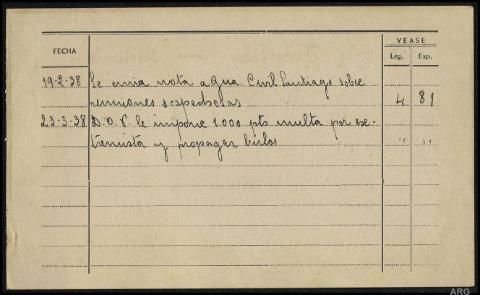 VEASE
FECHA
Leg. Exp.
19-2-38 Se envia nota a Gua Civil Santiago sobre
reuniones sospechosas 4 81
23-3-38 D.O.P. le impone 1.000 pts multa por ex-
tremista y propagar bulos " "
ARG